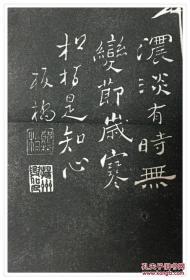 濃淡有時無
變節歲寒
松柏是知心
板橋